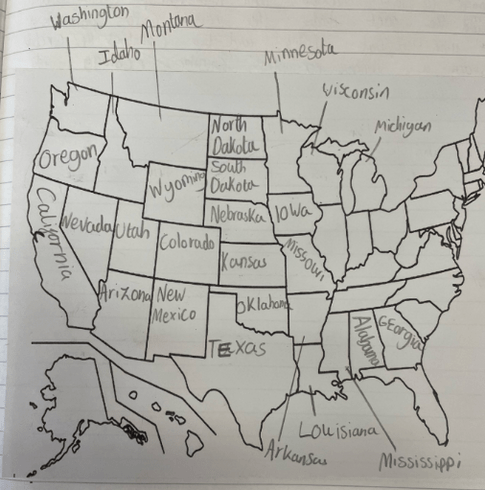 Washington
Montana
Idaho
Minnesota
Wisconsin
Michigan
North
Dakota
Oregon
South
Dakota
Wyoming
Nebraska
Iowa
California
Nevada
Utah
Colorado
Kansas
Missouri
Arizona
New
Mexico
Oklahoma
Texas
Alabama
Georgia
Louisiana
Arkansas
Mississippi